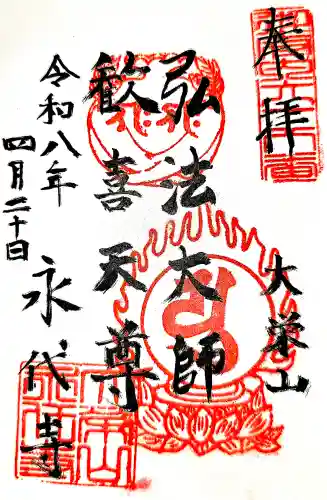 奉拝
大栄山
弘法大師
歓喜天尊
令和八年
四月二十日
永代寺